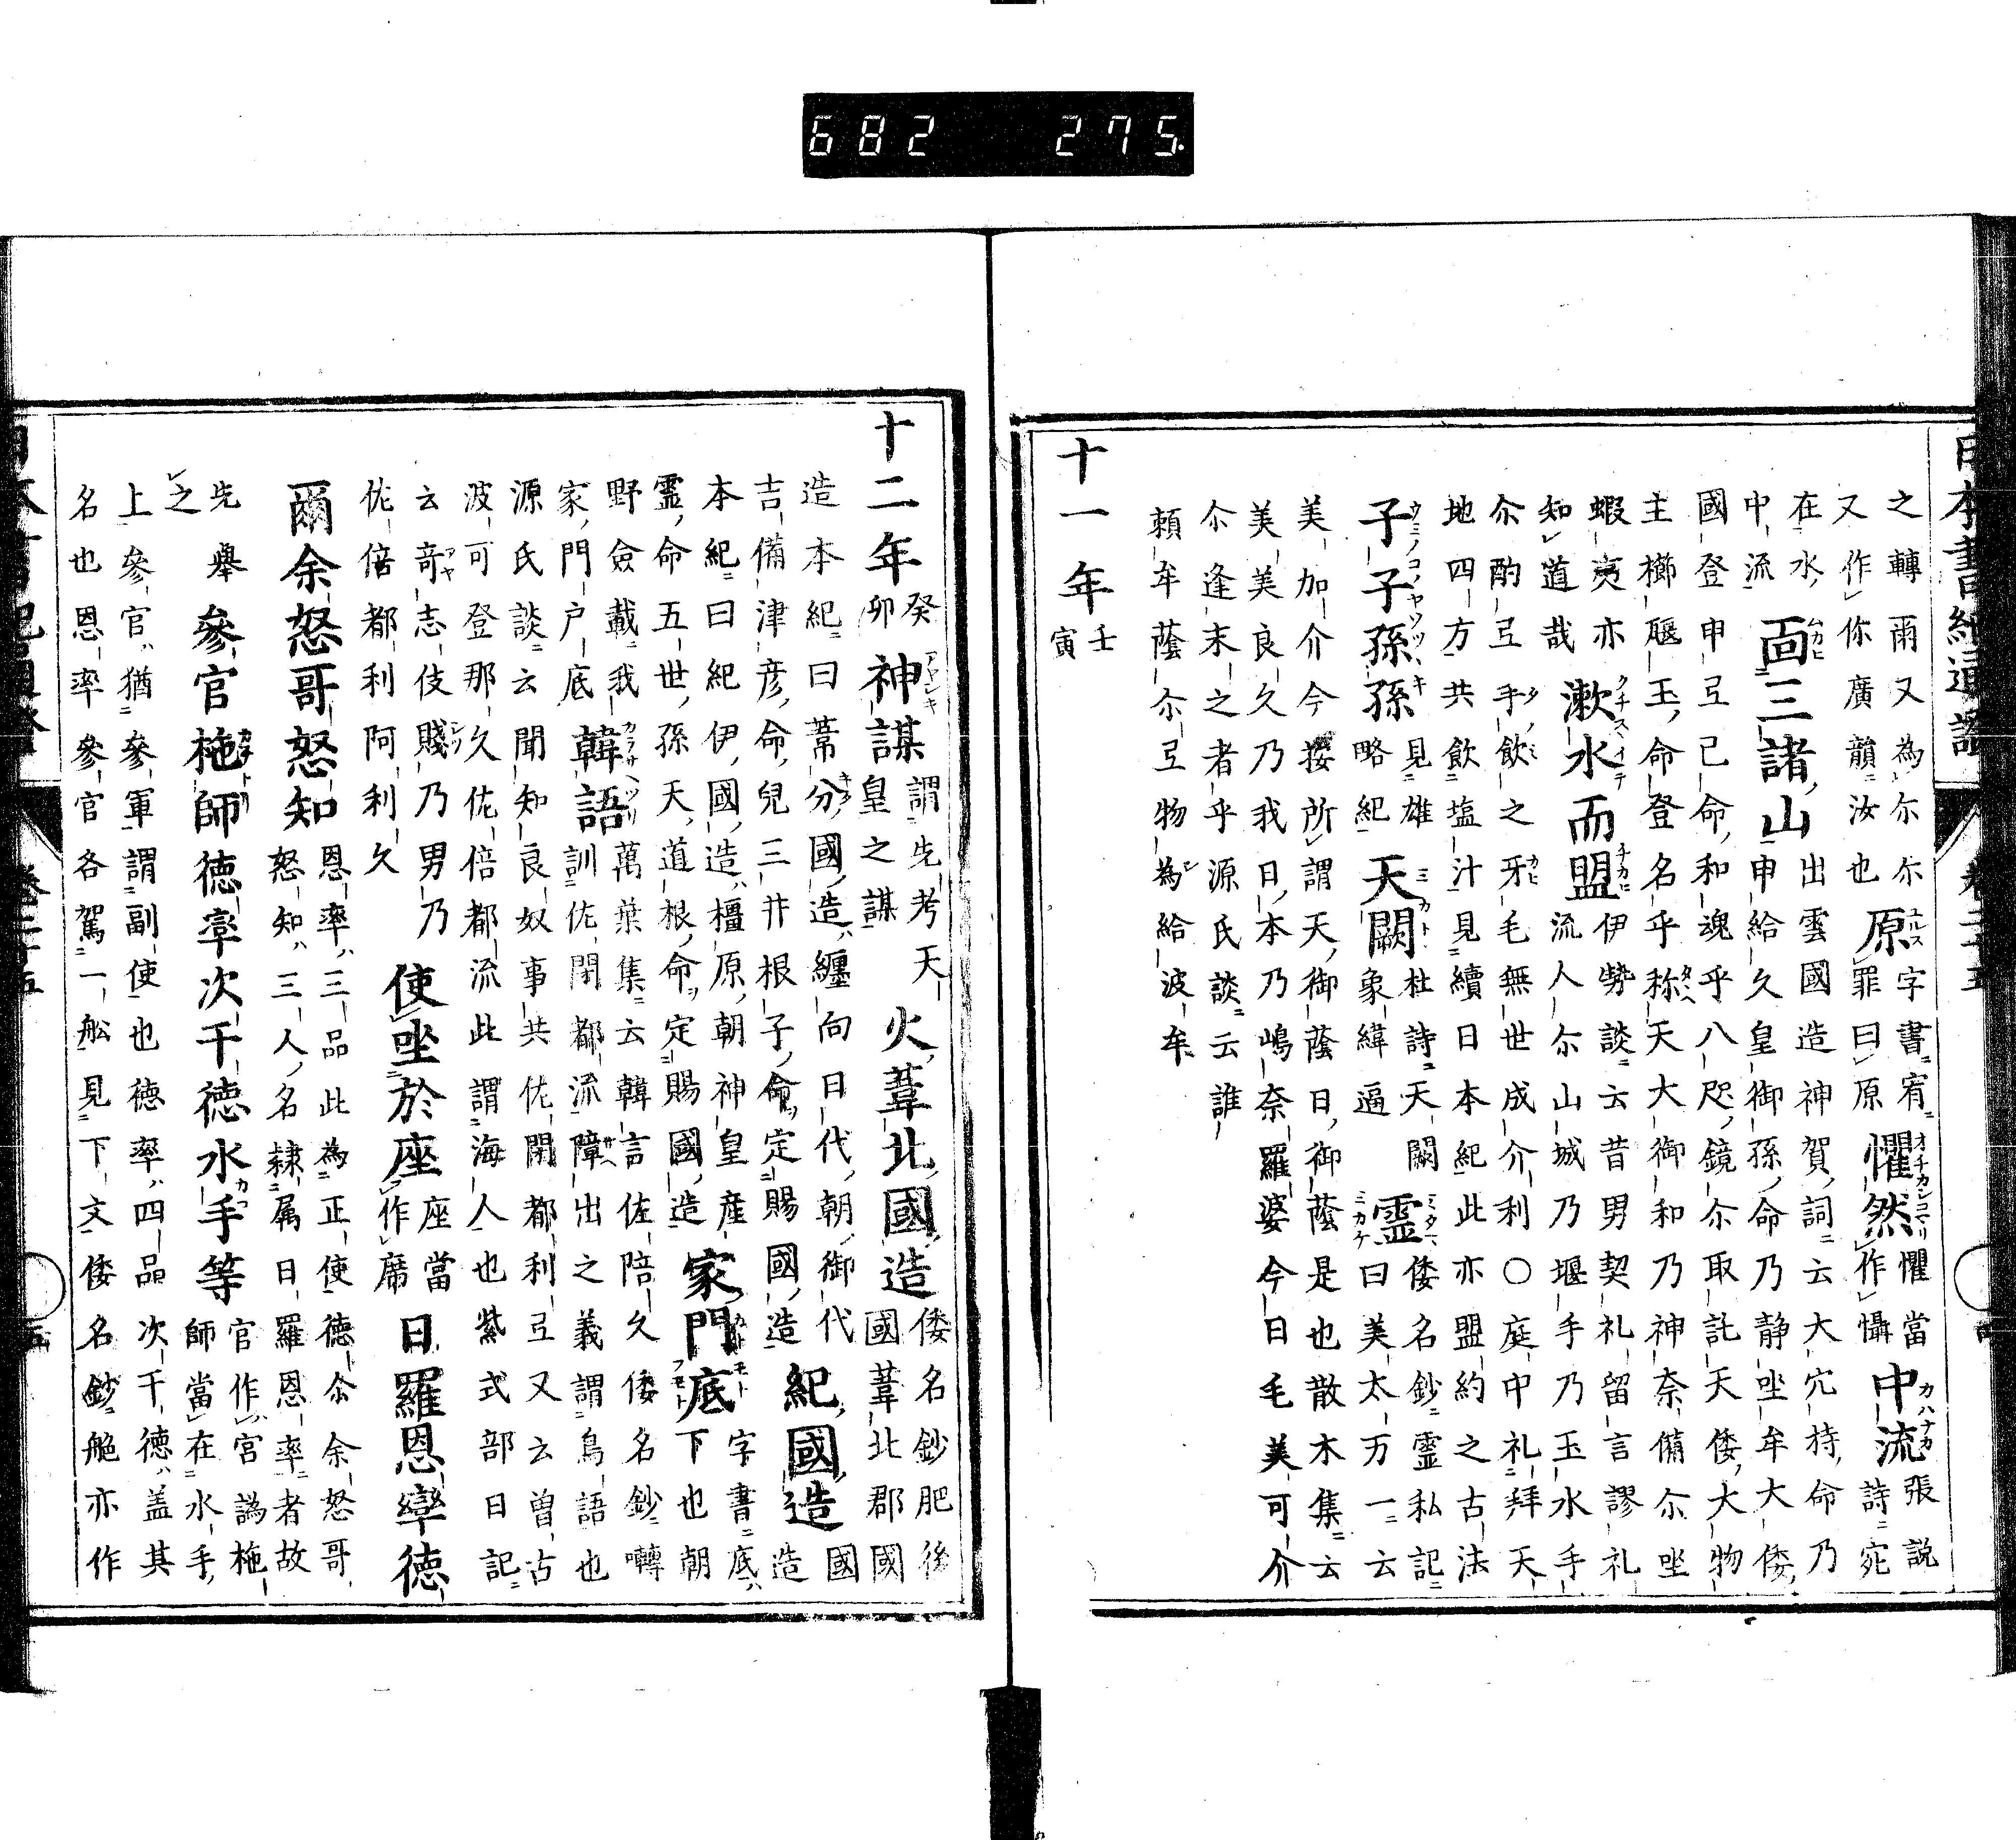 682 275
日本書紀通證
卷二十五
之轉爾又為尓尓字書宥
又作你廣韻汝也原罪曰原懼然懼當作懾中流張說詩宛
在水中流面三諸山出雲國造神賀詞云大穴持命乃
申給久皇御孫命乃静坐牟大倭
國登申弖己命和魂乎八咫鏡尓取託天倭大物
主櫛𤭖玉命登名乎称天大御和乃神奈備尓坐
蝦夷亦知道哉漱水而盟伊勢談云昔男契礼留言謬礼
流人尓山城乃堰手乃玉水手
尓酌弖手飲之牙毛無世成介利〇庭中礼拜天
地四方共飲塩汁見續日本紀此亦盟約之古法
子子孫孫見雄略紀天闕杜詩天闕象緯逼霊倭名鈔霊私記曰美太万一云
美加介今按所謂天御蔭日御蔭是也散木集云
美美良久乃我日本乃嶋奈羅婆今日毛美可介
尓逢末之者乎源氏談云誰
頼牟蔭尓弖物為給波牟
十一年壬寅
十二年癸卯神謀謂先考天皇之謀火葦北國造倭名鈔肥後國葦北郡國
造本紀曰葦分國造纏向日代朝御代
吉備津彦命兒三井根子命定賜國造紀國造國造
本紀曰紀伊國造橿原朝神皇産
霊命五世孫天道根命定賜國造家門底字書底下也朝
野僉載我家門戸底韓語萬葉集云韓言佐陪久倭名鈔囀
訓佐閇都流障出之義謂鳥語也
源氏談云聞知良奴事共佐閇都利弖又云曽古
波可登那久佐倍都流此謂海人也紫式部日記
云奇志伎賤乃男乃佐倍都利阿利久使坐於座座當作席日羅恩率德
爾余怒哥怒知恩率三品此為正使德尓余怒哥
怒知三人名隷属日羅恩率者故
先舉之參官柂師徳率次干德水手等官作宮譌柂師當在水手
上參官猶參軍謂副使也徳率四品次干徳蓋其
名也恩率參官各駕一舩見下文倭名鈔䑨亦作